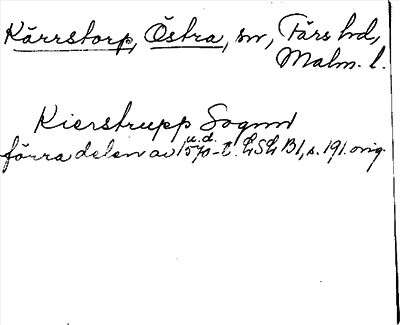 Kärrstorp, Östra, sn, Färs hd,
Malm. l.
Kierstrupp Sognn
u. d.
förra delen av 1570-t. LSL B1, s. 191. orig.